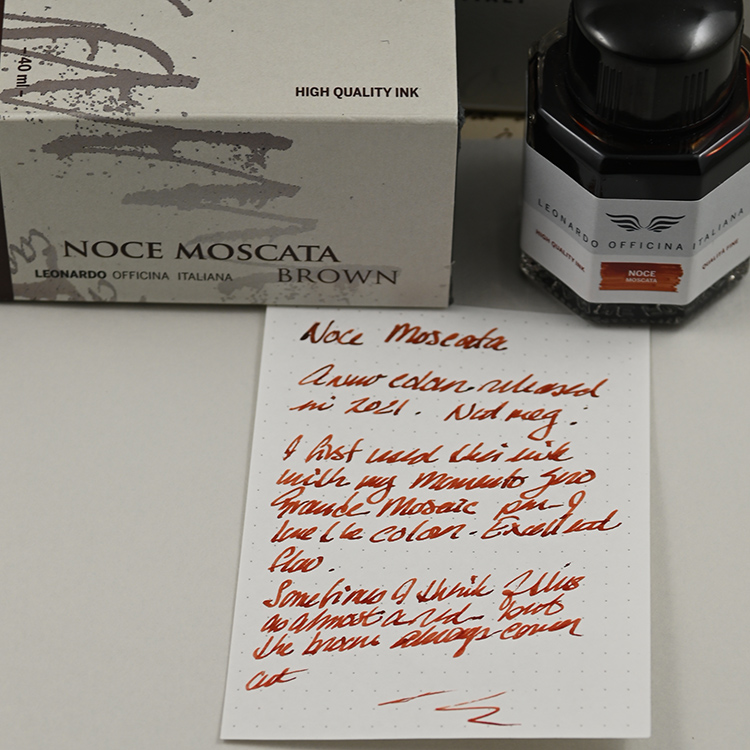 ~40 ml~
HIGH QUALITY INK
NOCE MOSCATA
LEONARDO OFFICINA ITALIANA
BROWN
LEONARDO OFFICINA ITALIANA
HIGH QUALITY INK
NOCE
MOSCATA
Noce Moscata
colour released
in 2021. Nutmeg.
I first used this ink
with my Momento Zero
Grande Mosaic pen - I
love the colour. Excellent
flow.
Sometimes I think of this
as almost a red - but
the brown always comes
out